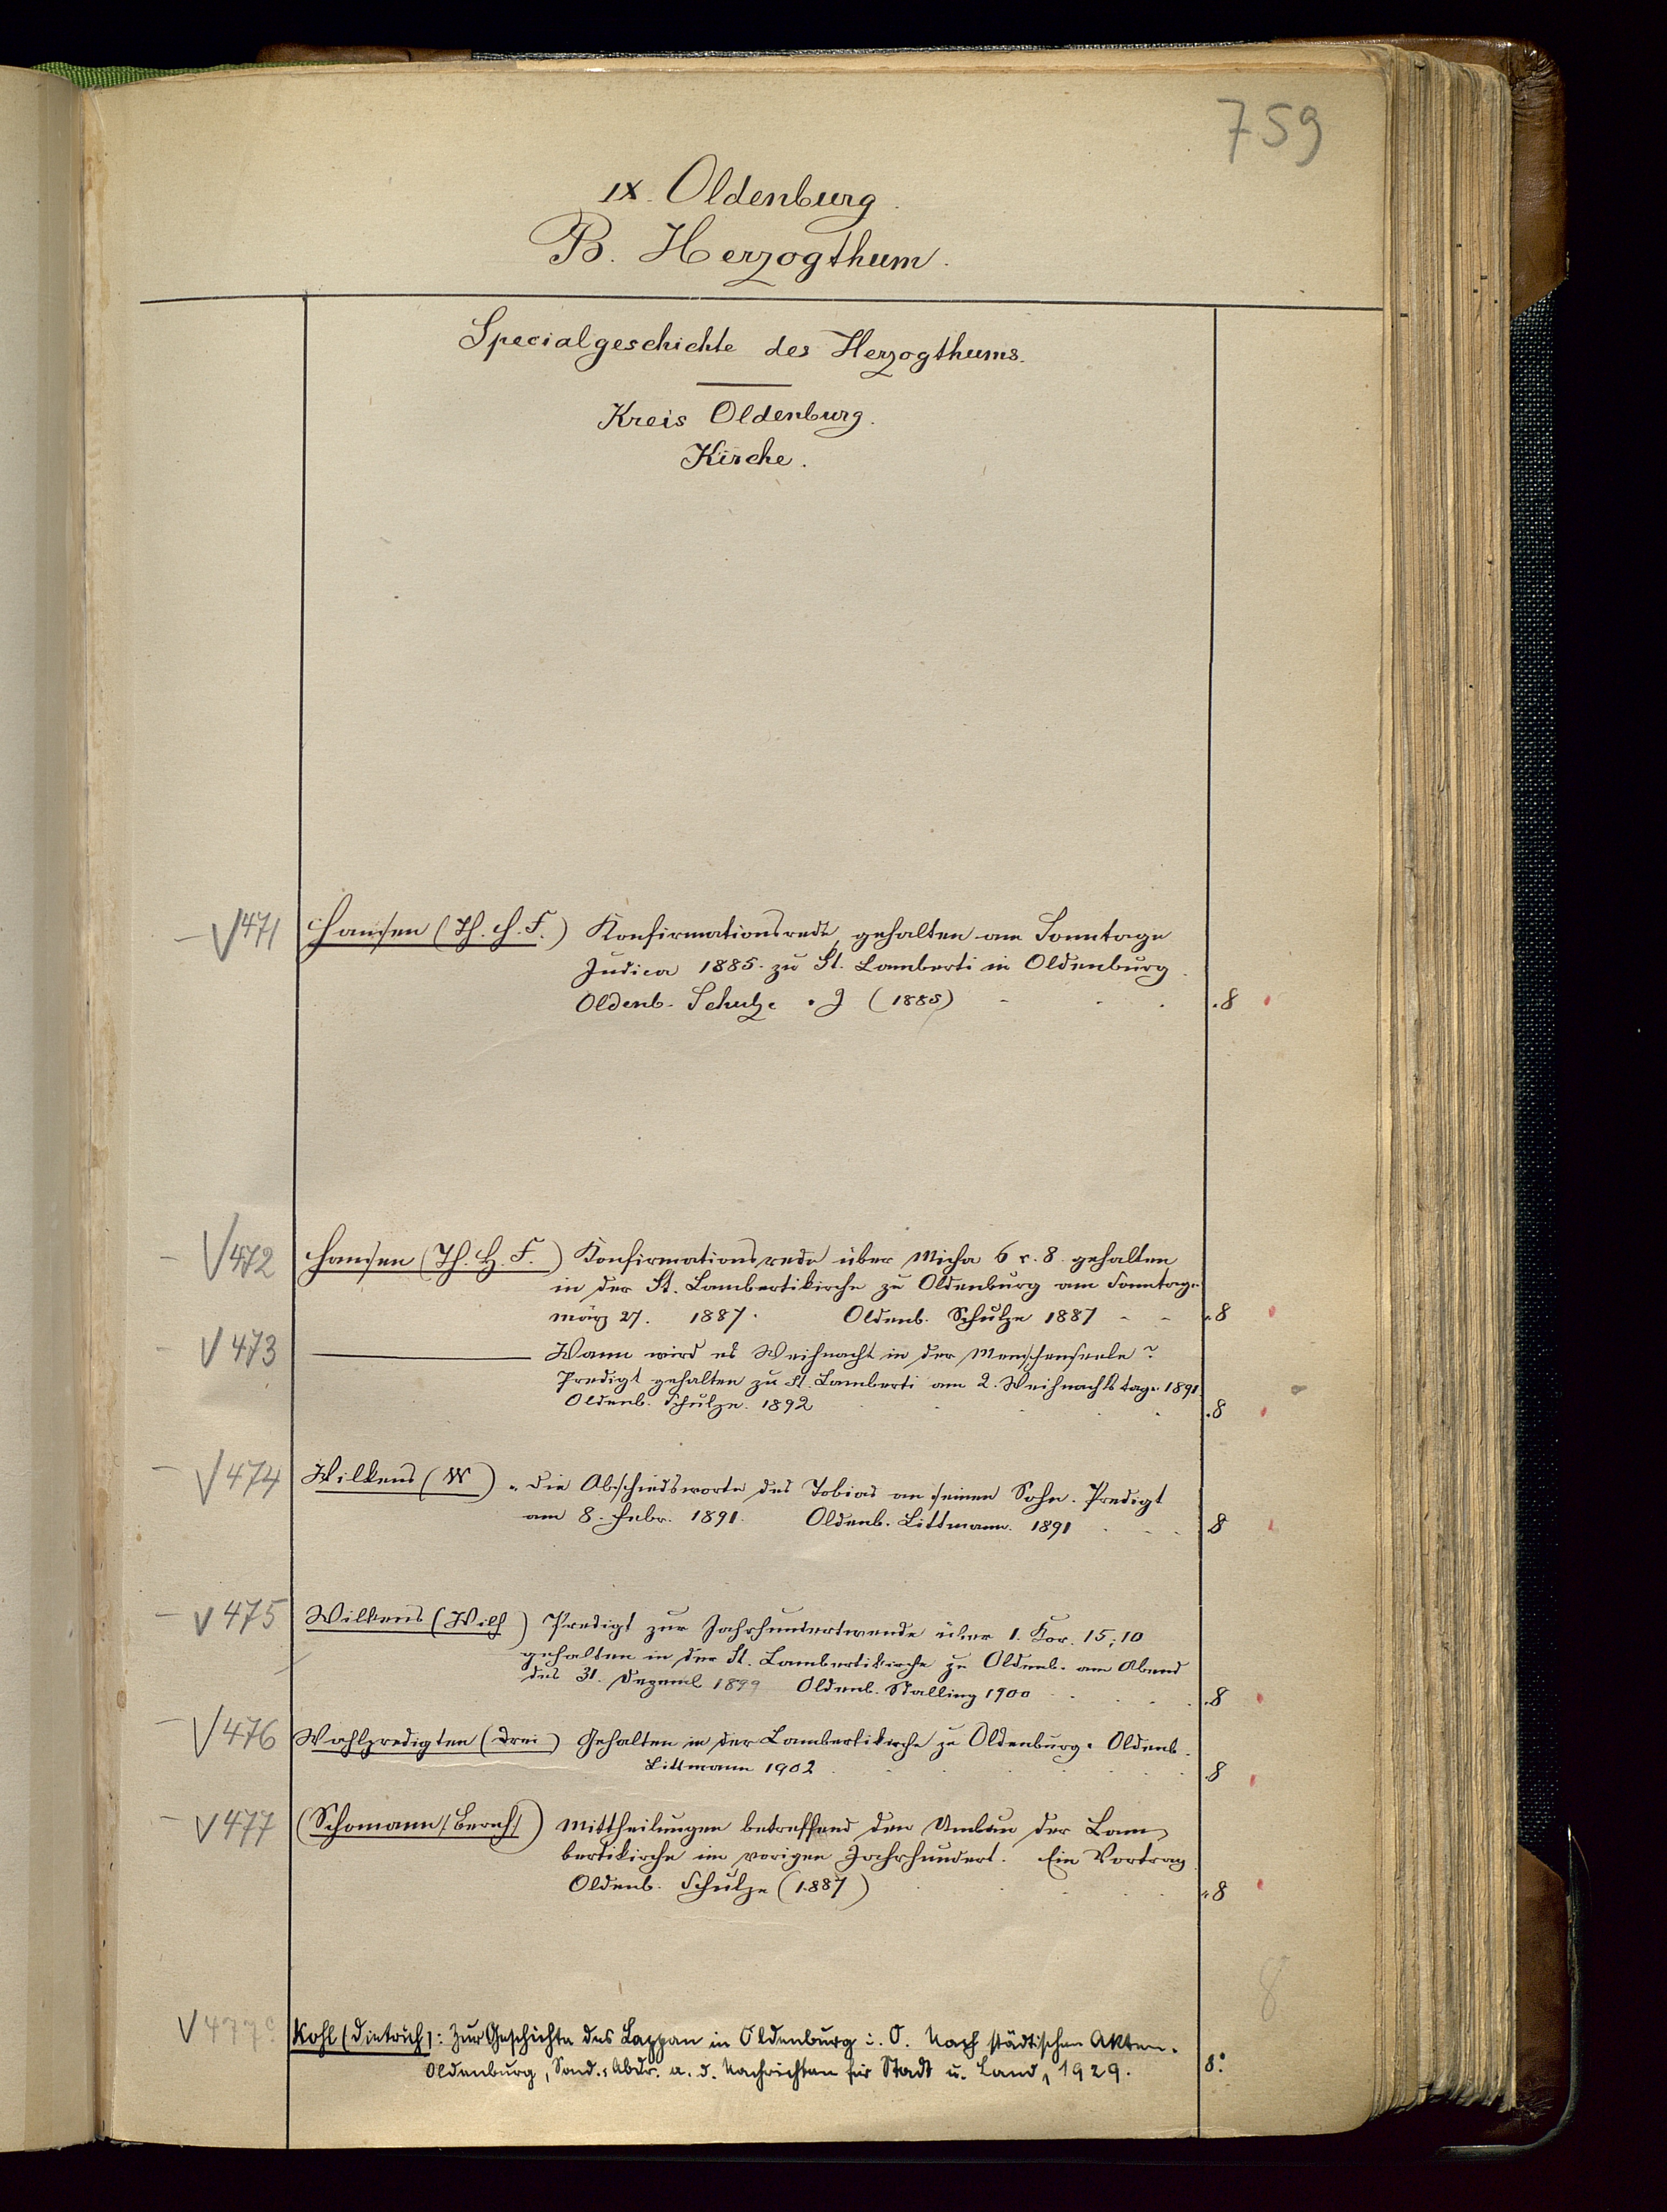 759
IX. Oldenburg.
B. Herzogthum.
Specialgeschichte des Herzogthums.
Kreis Oldenburg.
Kirche.
471 Hansen (Th. H. F.) Konfirmationsrede, gehalten am Sonntage
Judica 1885. zu St. Lamberti in Oldenburg.
Oldenb. Schulze. (1885) 8
472 Hansen (Th. H. F.) Konfirmationsrede über Micha 6 v. 8. gehalten
in der St. Lambertikirche zu Oldenburg am Sonntage
März 27. 1887. Oldenb. Schulze 1887 8
473 Wann wird es Weihnacht in der Menschenseele?
Predigt gehalten zu St. Lamberti am 2. Weihnachtstage 1891.
Oldenb. Schulze. 1892 8
474 Wilkens (W) Die Abschiedsworte des Tobias an seinen Sohn. Predigt
am 8. Febr. 1891. Oldenb. Littmann. 1891 8
475 Wilkens (Wilh) Predigt zur Jahrhundertwende über 1. Kor. 15;10
gehalten in der St. Lambertikirche zu Oldenb. am Abend
des 31. Dezemb 1899 Oldenb. Stalling 1900 8
476 Wahlpredigten (Drei) Gehalten in der Lambertikirche zu Oldenburg. Oldenb.
Littmann 1902 8
477 (Schomann) Mittheilungen betreffend den Umbau der Lam-
bertikirche im vorigen Jahrhundert. Ein Vortrag.
Oldenb. Schulze (1887) 8
8
477c Kohl (Dietrich): Zur Geschichte des Lappan in Oldenburg i. O. Nach städtischen Akten.
Oldenburg, Sond.-Abdr. a. d. Nachrichten für Stadt u. Land, 1929. 8°